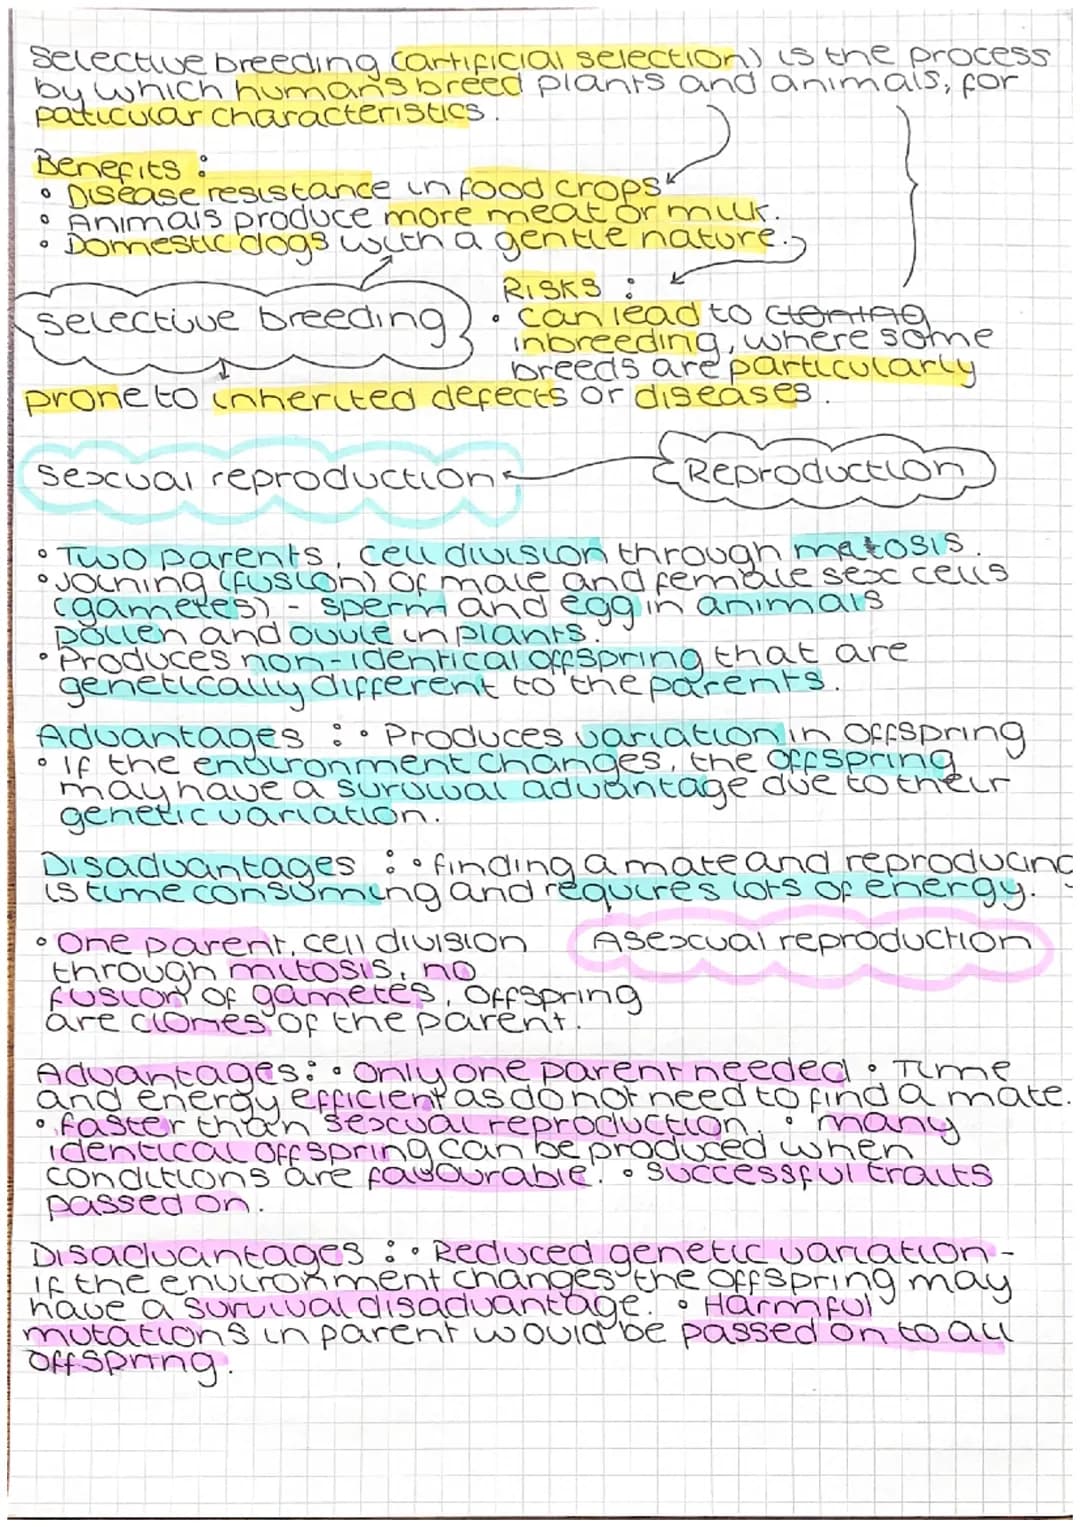 Selective breeding (artificial selection) is the process
by which humans breed plants and animals, for
paticular characteristics.
Benefits :
• Disease resistance in food crops
• Animals produce more meat or milk.
• Domestic dogs with a gentle nature.
Selective breeding
Risks :
• can lead to cloning
inbreeding, where some
breeds are particularly
prone to inherited defects or diseases.
Sexual reproduction
Reproduction
• Two parents, cell division through meiosis.
• Joining (fusion) of male and female sex cells
(gametes) - sperm and egg in animals
pollen and ovule in plants.
• Produces non-identical offspring that are
genetically different to the parents.
Advantages : • Produces variation in offspring
• If the environment changes, the offspring
may have a survival advantage due to their
genetic variation.
Disadvantages : • finding a mate and reproducing
is time consuming and requires lots of energy.
• One parent, cell division
Asexual reproduction
through mitosis, no
fusion of gametes, offspring
are clones of the parent.
Advantages: • Only one parent needed • Time
and energy efficient as do not need to find a mate.
• faster than sexual reproduction. • many
identical offspring can be produced when
conditions are favourable. • Successful traits
passed on.
Disadvantages : • Reduced genetic variation -
if the environment changes the offspring may
have a survival disadvantage. • Harmful
mutations in parent would be passed on to all
offspring.